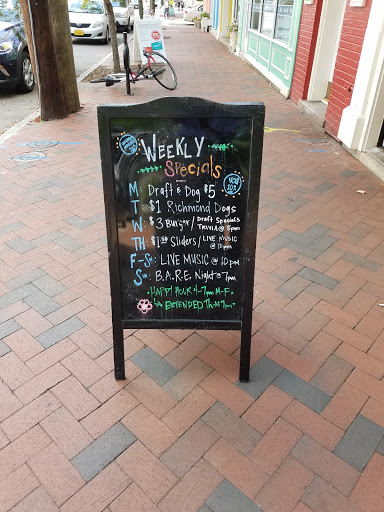 WEEKLY
Specials
M: Draft & Dog $5
T: $1 Richmond Dogs
W: $3 Burger / Draft Specials
TRIVIA @ 8pm
TH: Sliders / LIVE MUSIC
@ 10pm
F-Sa: LIVE MUSIC @ 10pm
Su: B.A.R.E. Night @ 7pm
HAPPY HOUR 4-7pm M-F
EXTENDED